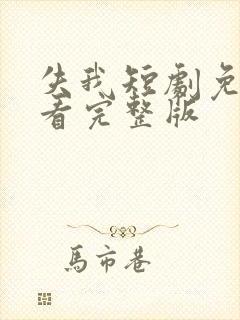 失我短劇免
看完整版
馬市巷